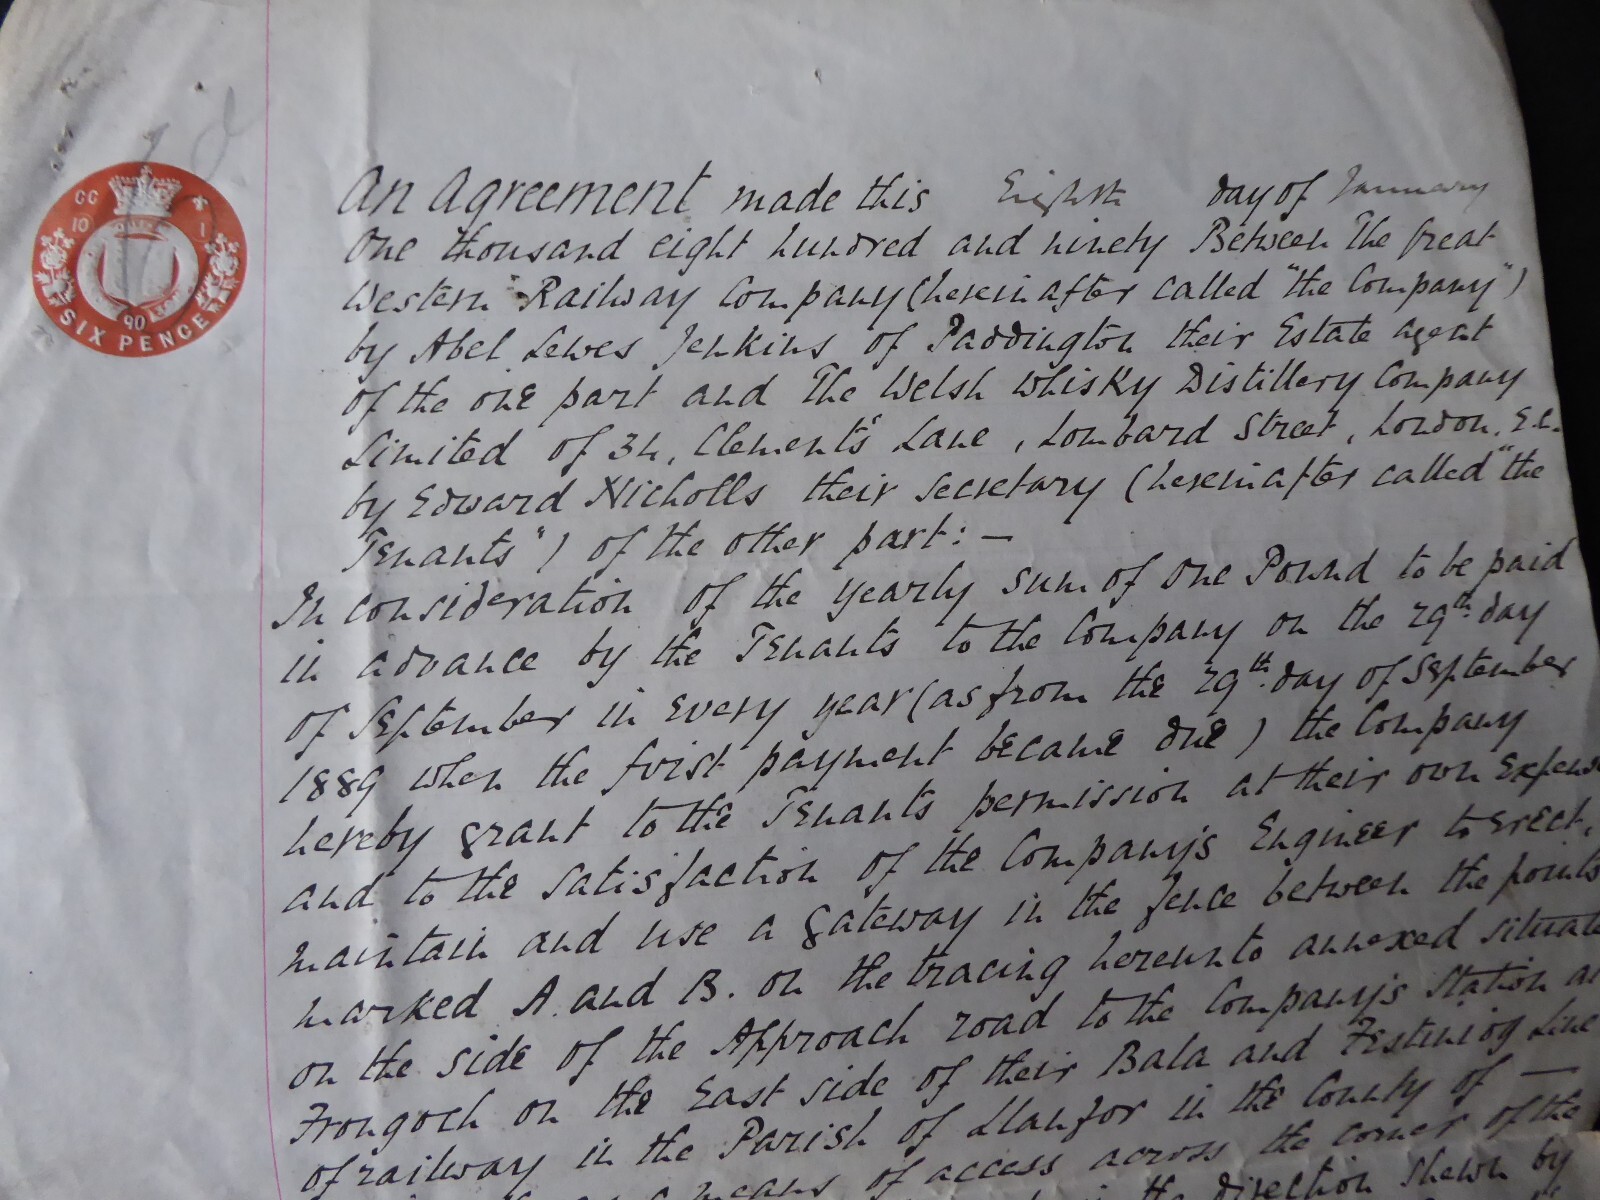 CC
10
1
90
SIX PENCE
An Agreement made this Eighth day of January
One thousand eight hundred and ninety Between The Great
Western Railway Company (hereinafter called "the Company")
by Abel Lewes Jenkins of Paddington their Estate Agent
of the one part and The Welsh Whisky Distillery Company
Limited of 34, Clements Lane, Lombard Street, London, E.C.
by Edward Nicholls their Secretary (hereinafter called "the
Tenants") of the other part: —
In consideration of the yearly sum of One Pound to be paid
in advance by the Tenants to the Company on the 29th day
of September in every year (as from the 29th day of September
1889 when the first payment became due) the Company
hereby grant to the Tenants permission at their own Expense
and to the satisfaction of the Company's Engineer to erect,
maintain and use a gateway in the fence between the points
marked A. and B. on the tracing hereunto annexed situate
on the side of the Approach road to the Company's Station at
Frongoch on the East side of their Bala and Festiniog Line
of railway in the Parish of Llanfor in the County of —
a means of access across the corner of the
the direction shewn by